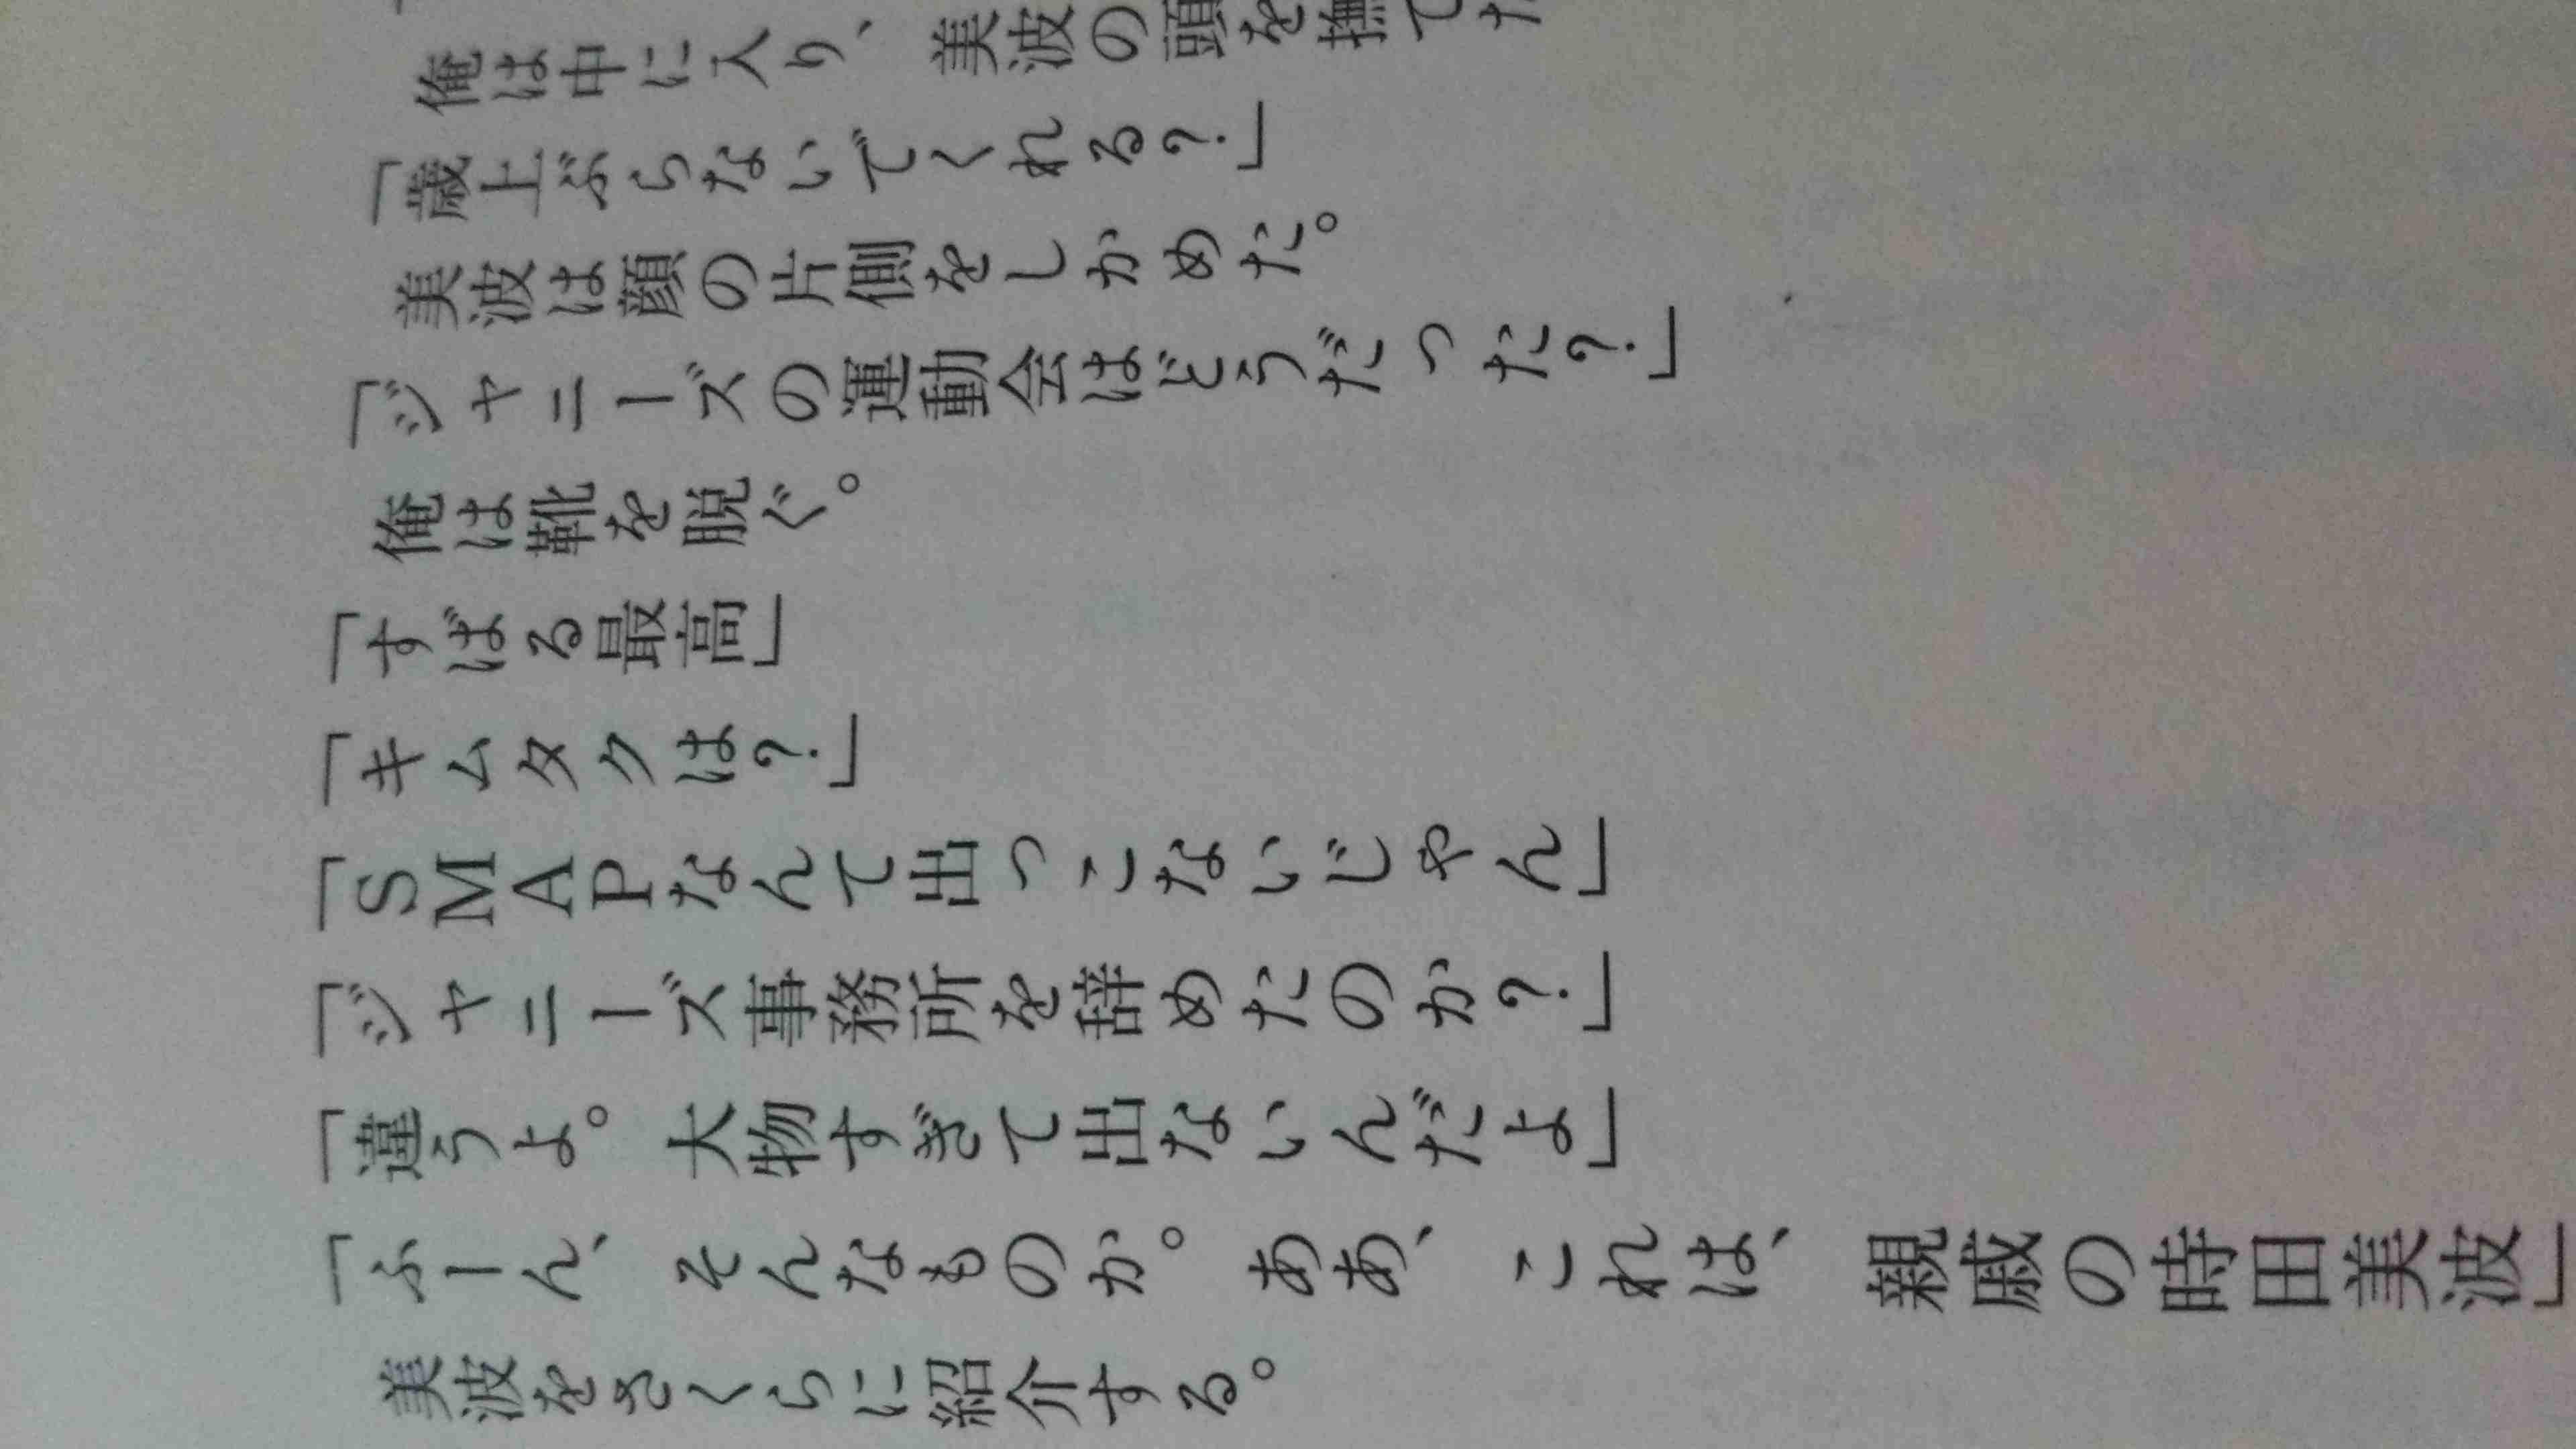 俺は中に入り、美波の頭を撫でた
「歳上ぶらないでくれる?」
美波は顔の片側をしかめた。
「ジャニーズの運動会はどうだった?」
俺は靴を脱ぐ。
「すばる最高」
「キムタクは?」
「SMAPなんて出っこないじゃん」
「ジャニーズ事務所を辞めたのか?」
「違うよ。大物すぎて出ないんだよ」
「ふーん、そんなものか。ああ、これは、親戚の時田美波」
美波をさくらに紹介する。